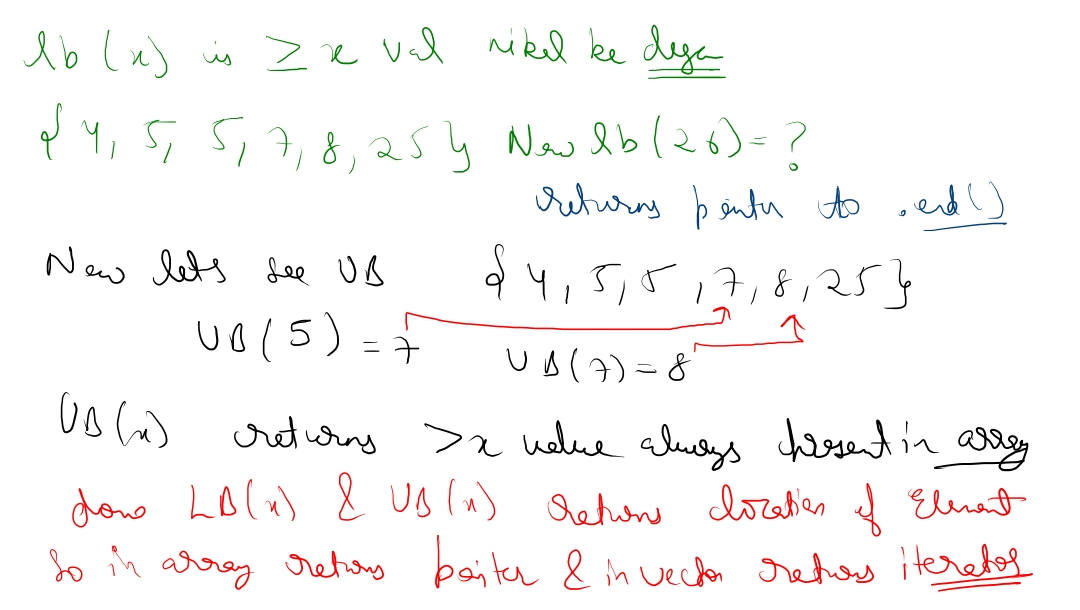 lb (x) is ≥ x val nikal ke dega
{ 4, 5, 5, 7, 8, 25 } Now lb (26) = ?
returns pointer to .end()
Now lets see UB { 4, 5, 5, 7, 8, 25 }
UB(5) = 7 UB(7) = 8
UB(x) returns > x value always present in array
dono LB(x) & UB(x) returns location of Element
So in array returns pointer & in vector returns iterator